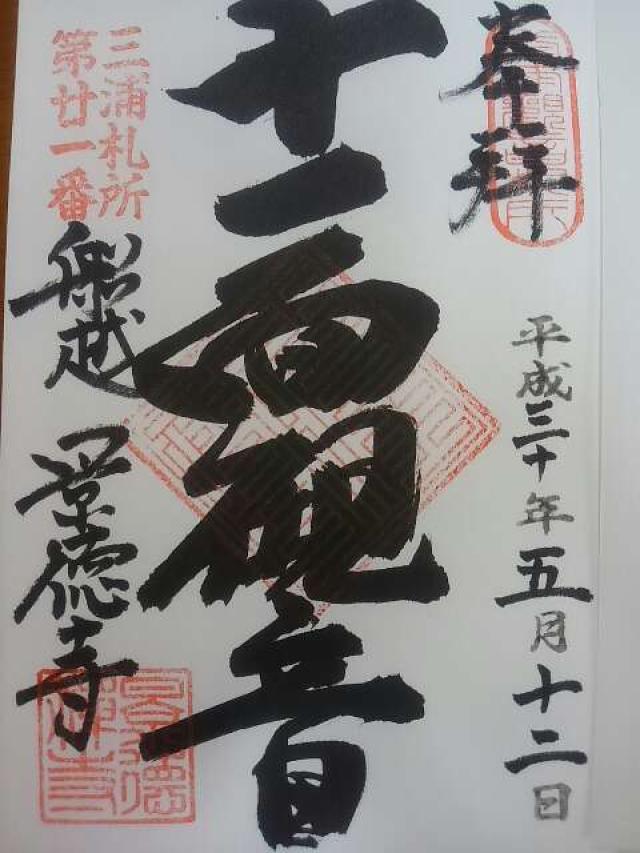 奉拝
平成三十年五月十二日
十一面観音
三浦札所
第廿一番
船越
景徳寺
景徳禅寺